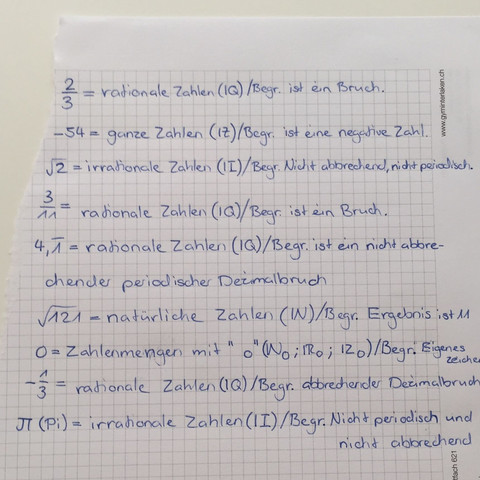 2/3 = rationale Zahlen (Q)/Begr. ist ein Bruch.
-54 = ganze Zahlen (Z)/Begr. ist eine negative Zahl.
√2 = irrationale Zahlen (I)/Begr. Nicht abbrechend, nicht periodisch.
3/11 = rationale Zahlen (Q)/Begr. ist ein Bruch.
4,1̅ = rationale Zahlen (Q)/Begr. ist ein nicht abbre-
chender periodischer Dezimalbruch
√121 = natürliche Zahlen (N)/Begr. Ergebnis ist 11
0 = Zahlenmengen mit "0" (N₀; R₀; Z₀)/Begr. Eigenes
zeichen
-1/3 = rationale Zahlen (Q)/Begr. abbrechender Dezimalbruch
π (Pi) = irrationale Zahlen (I)/Begr. Nicht periodisch und
nicht abbrechend
www.gyminterlaken.ch